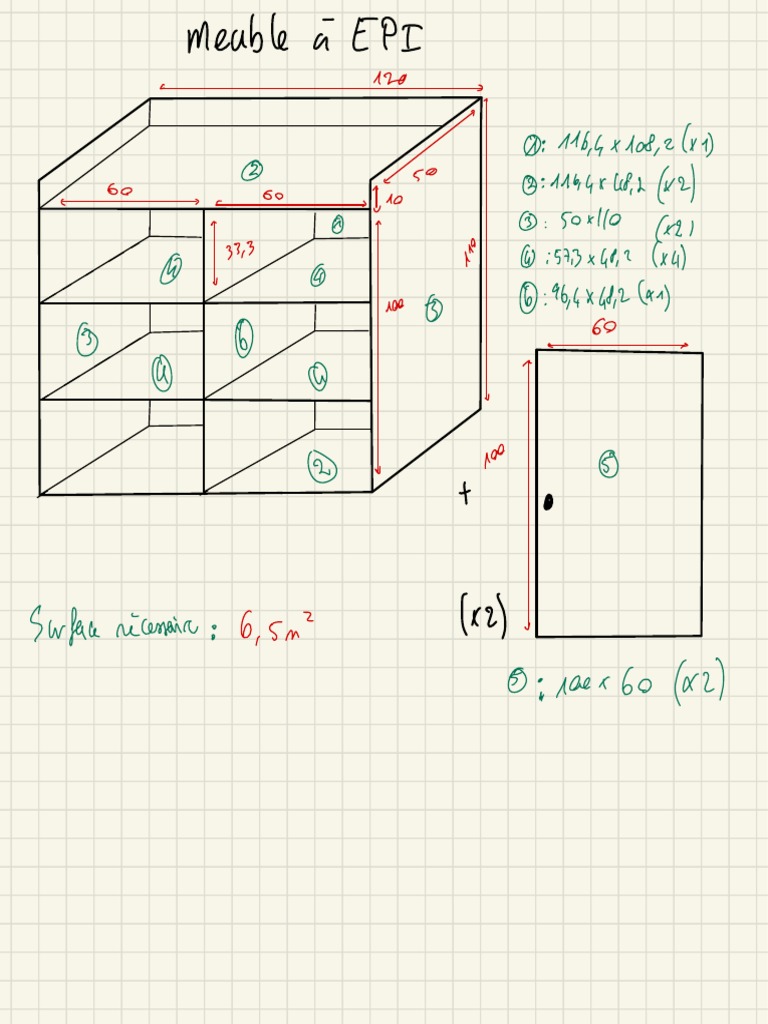 Meuble à EPI
120
50
②
60
60
10
①: 116,4 x 108,2 (x1)
②: 116,4 x 48,2 (x2)
③: 50 x 110 (x2)
④: 57,3 x 48,2 (x4)
⑥: 96,4 x 48,2 (x1)
①
33,3
④
④
110
100
③
③
⑥
④
④
②
60
100
⑤
+
(x2)
Surface nécessaire : 6,5m²
⑤: 100 x 60 (x2)